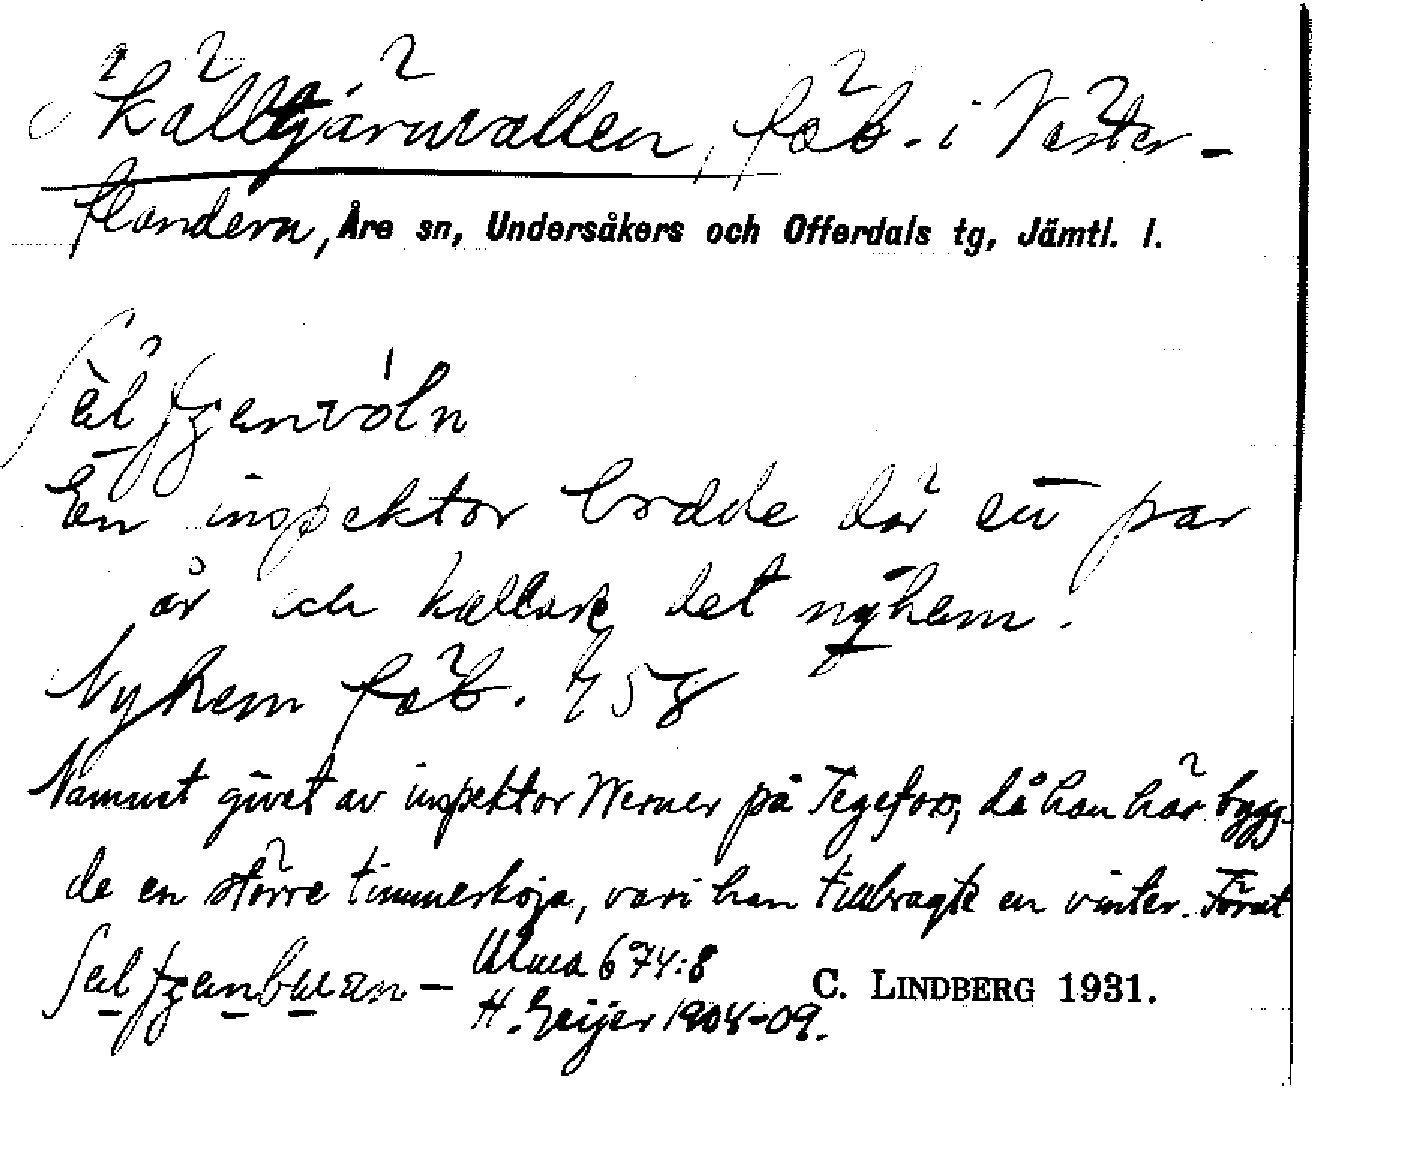 Källtjärnvallen, fäb. i Väster-
flandern, Åre sn, Undersåkers och Offerdals tg, Jämtl. l.
En inspektor bodde där ett par
år och kallade det nyhem.
Nyhem fäb. 758
Namnet givet av inspektor Werner på Tegefors, då han här bygg-
de en större timmerkoja, vari han tillbragte en vinter. Förut
Ulma 674:8
C. LINDBERG 1931.
H. Geijer 1908-09.